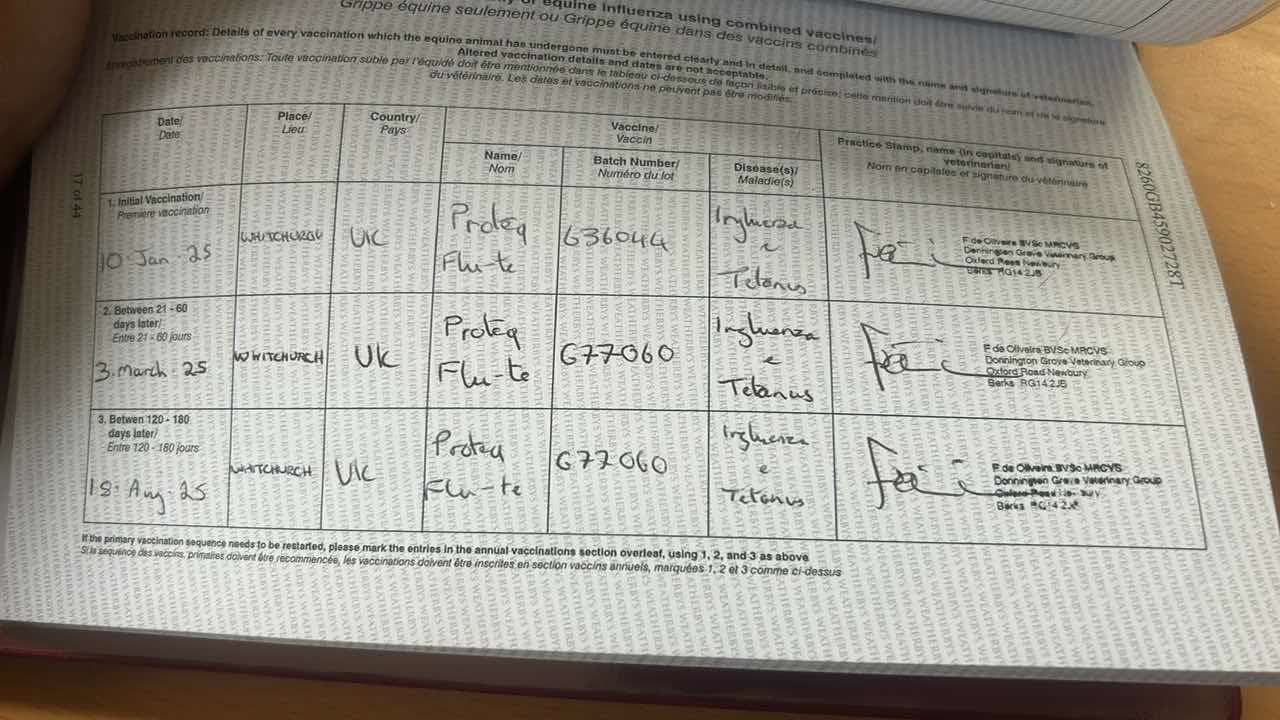 of equine influenza using combined vaccines/
Grippe équine seulement ou Grippe équine dans des vaccins combinés
Vaccination record: Details of every vaccination which the equine animal has undergone must be entered clearly and in detail, and completed with the name and signature of veterinarian.
Altered vaccination details and dates are not acceptable.
Enregistrement des vaccinations: Toute vaccination subie par l'équidé doit être mentionnée dans le tableau ci-dessous de façon lisible et précise: cette mention doit être suivie du nom et de la signature
du vétérinaire. Les dates et vaccinations ne peuvent pas être modifiés.
Date/
Date
Place/
Lieu
Country/
Pays
Vaccine/
Vaccin
Name/
Nom
Batch Number/
Numéro du lot
Disease(s)/
Maladie(s)
Practice Stamp, name (in capitals) and signature of
veterinarian/
Nom en capitales et signature du vétérinaire
1. Initial Vaccination/
Première vaccination
10. Jan. 25
WHITCHURCH
UK
Proteq
Flu-te
636044
Influenza
e
Tetanus
F de Oliveira BVSc MRCVS
Donnington Grove Veterinary Group
Oxford Road Newbury
Berks RG14 2JB
2. Between 21 - 60
days later/
Entre 21 - 60 jours
3. March. 25
WHITCHURCH
UK
Proteq
Flu-te
677060
Influenza
e
Tetanus
F de Oliveira BVSc MRCVS
Donnington Grove Veterinary Group
Oxford Road Newbury
Berks RG14 2JB
3. Betwen 120 - 180
days later/
Entre 120 - 180 jours
18. Aug. 25
WHITCHURCH
UK
Proteq
Flu-te
677060
Influenza
e
Tetanus
F de Oliveira BVSc MRCVS
Donnington Grove Veterinary Group
Oxford Road
Berks RG14 2JB
If the primary vaccination sequence needs to be restarted, please mark the entries in the annual vaccinations section overleaf, using 1, 2, and 3 as above
Si la séquence des vaccins, primaires doivent être recommencée, les vaccinations doivent être inscrites en section vaccins annuels, marquées 1, 2 et 3 comme ci-dessus
17 of 44
8260GB45902728T